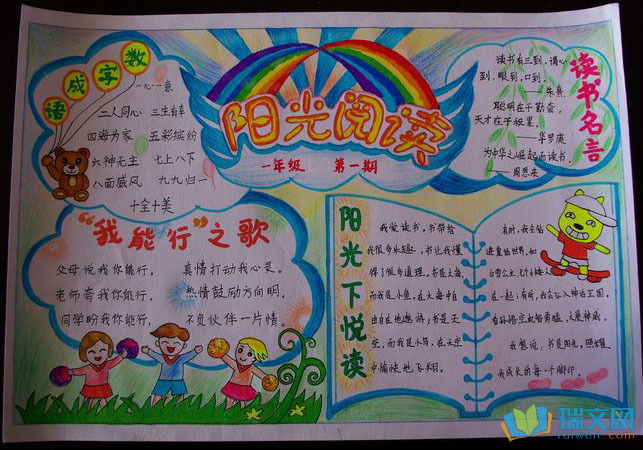 数字成语
一心一意
二人同心 三生有幸
四海为家 五彩缤纷
六神无主 七上八下
八面威风 九九归一
十全十美
阳光阅读
一年级 第一期
读书名言
读书有三到，谓心
到，眼到，口到。
——朱熹
聪明在于勤奋，
天才在于积累。
——华罗庚
为中华之崛起而读书。
——周恩来
“我能行”之歌
父母说我你能行， 真情打动我心灵。
老师夸我你能行， 热情鼓励方向明。
同学盼我你能行， 不负伙伴一片情
阳光下悦读
我爱读书，书带给
我很多乐趣，书让我懂
得了很多道理。书是大海，
而我是小鱼，在大海中自
由自在地遨游；书是天
空，而我是小鸟，在天空
中愉快地飞翔。
有时，我会钻
进童话世界，和
白雪公主、七个小矮人
在一起；有时，我会飞入神话王国，
看孙悟空机智勇猛，大展神威。
我想说，书是阳光，照耀
我成长的每一个脚印。
瑞文网
ruiwen.com